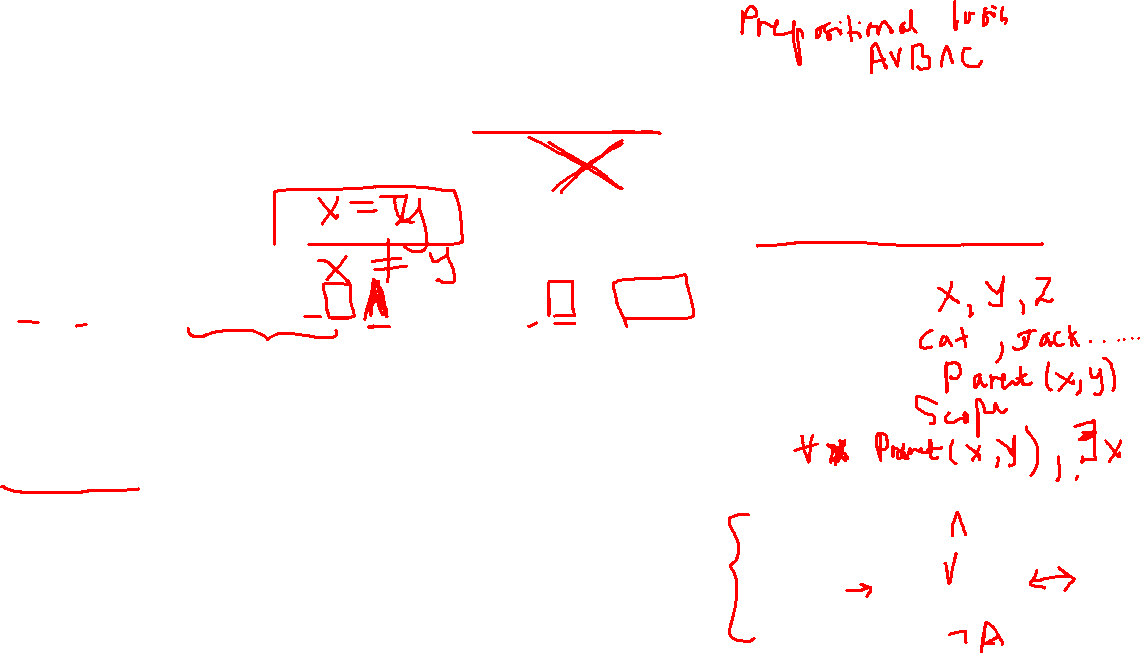 Prepositional logic
A∨B∧C
x = y
x ≠ y
x, y, z
Cat, Jack......
Parent (x,y)
Scope
∀x Parent(x,y), ∃x
∧
→ ∨ ↔
¬A